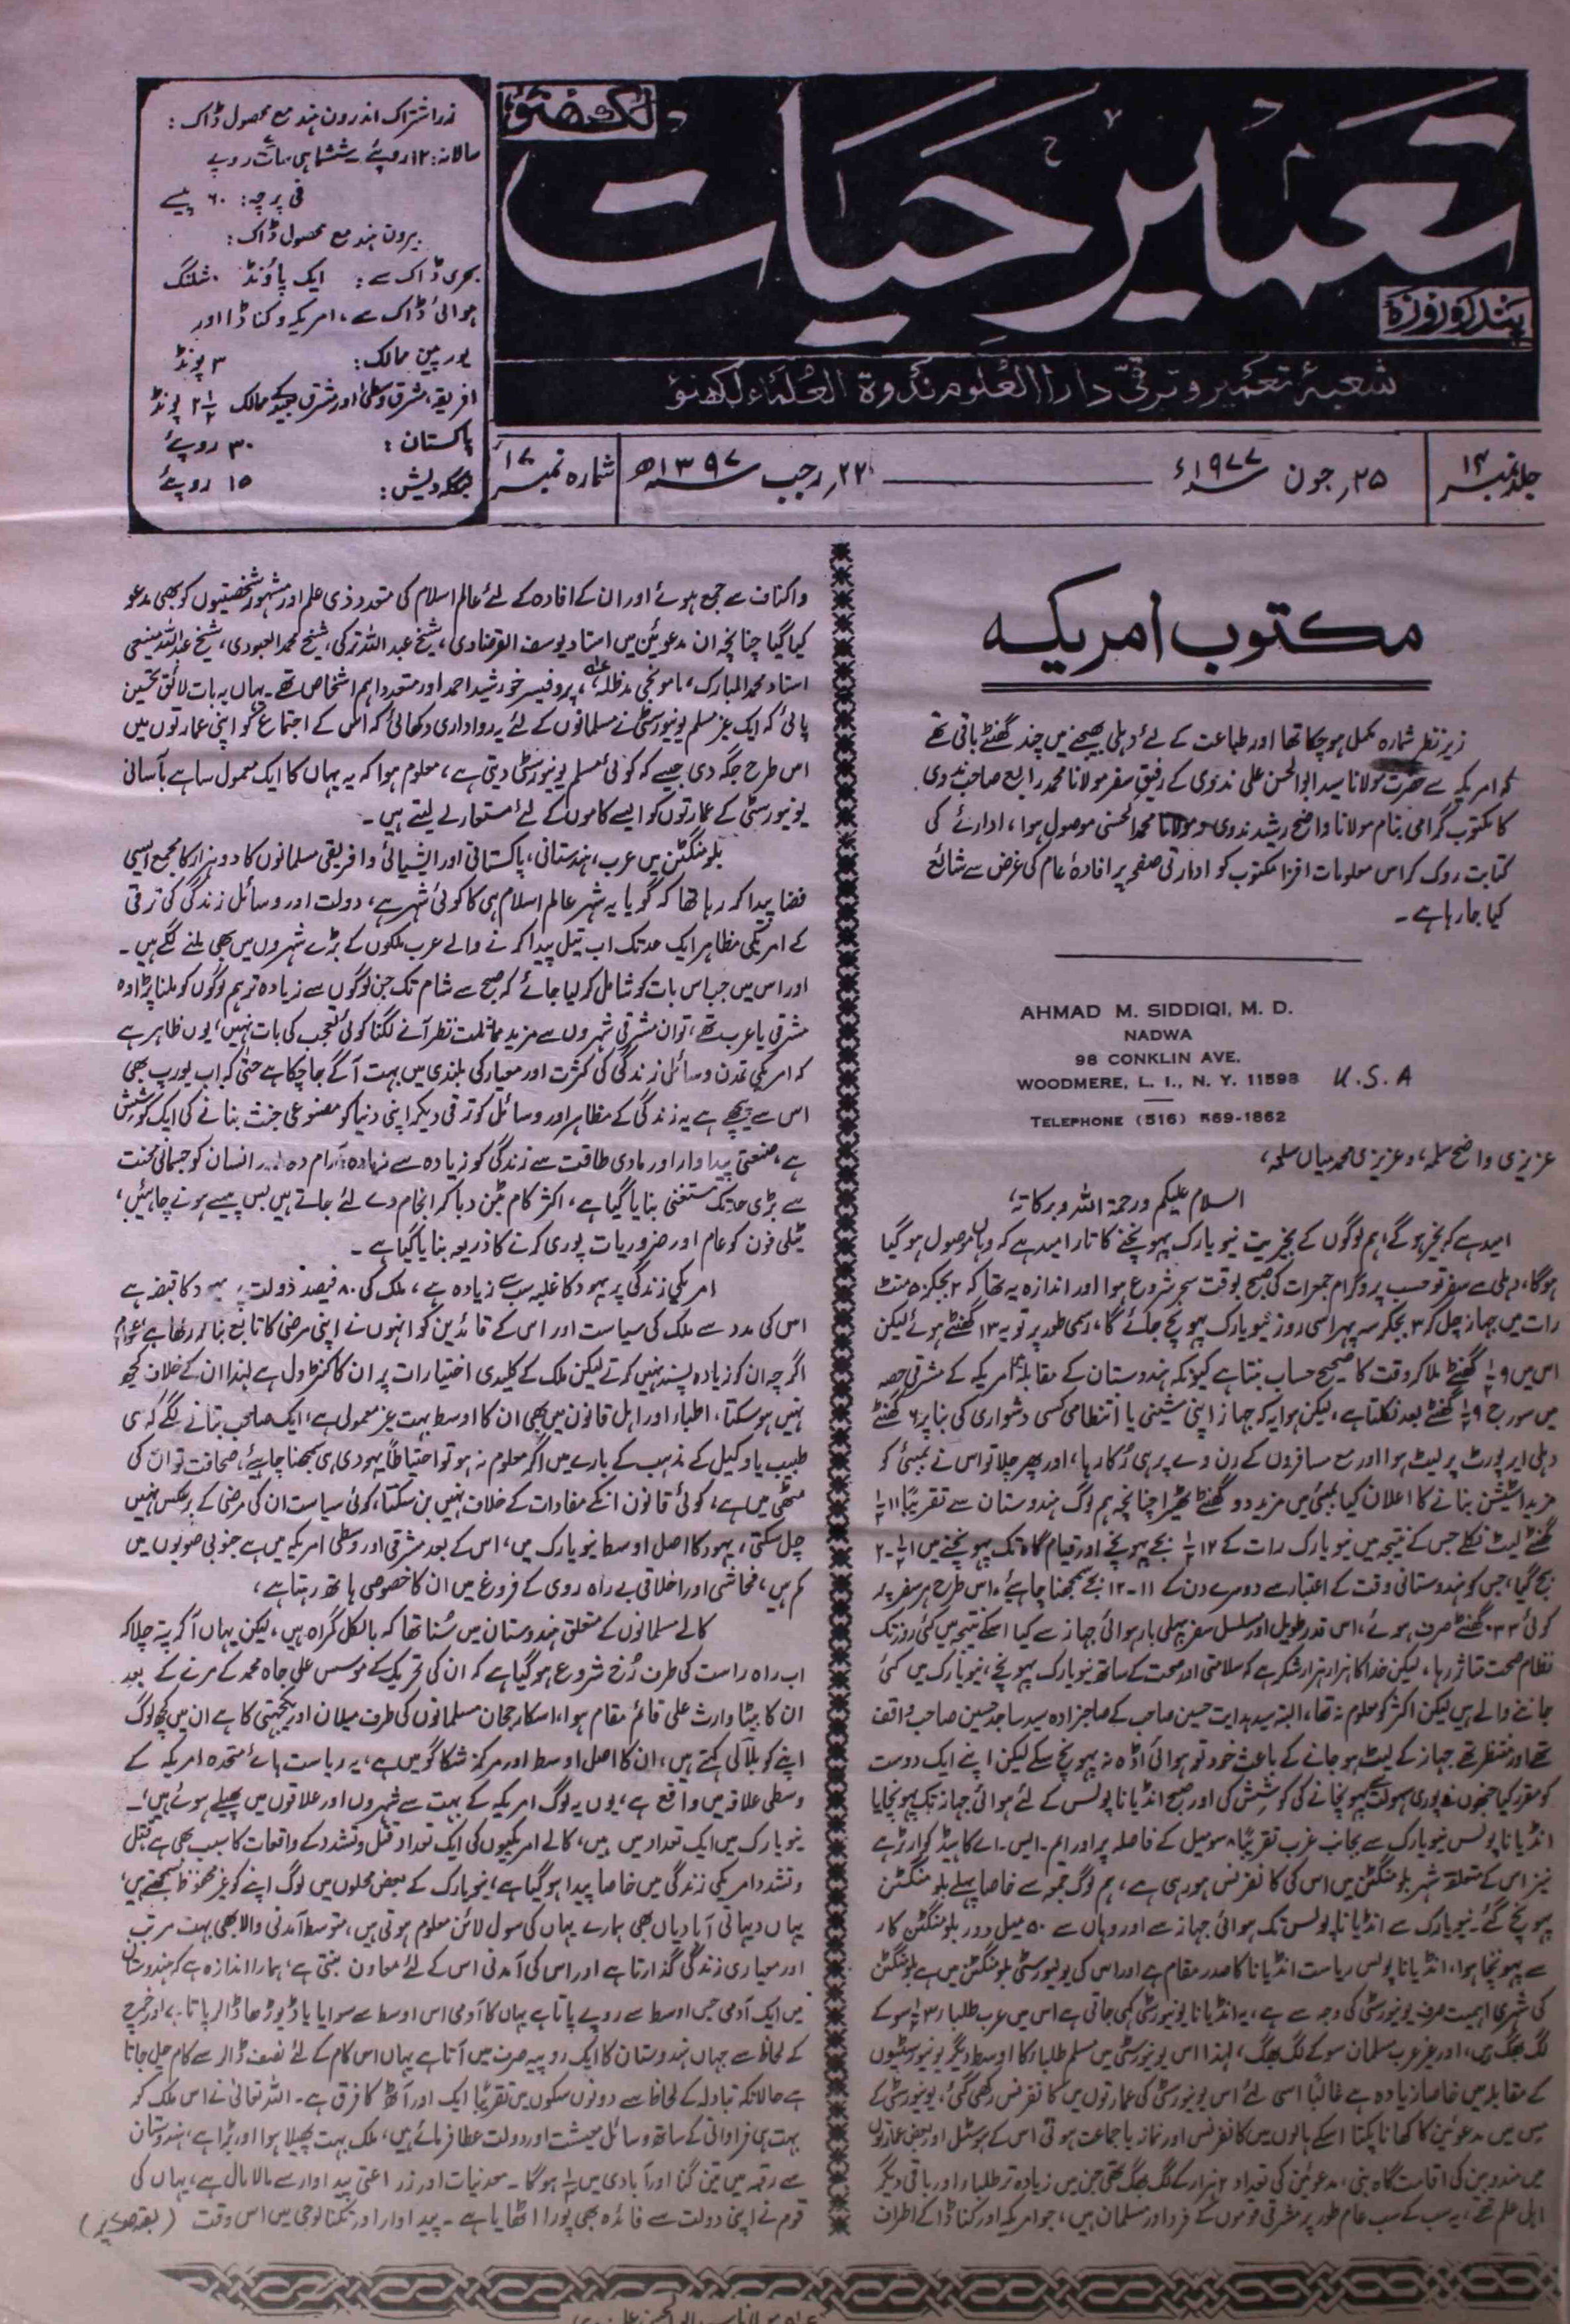 لکھنؤ
تعمیر حیات
پندرہ روزہ
شعبۂ تعمیر و ترقی دارالعلوم ندوۃ العلماء لکھنؤ
زر اشتراک اندرون ہند مع محصول ڈاک:
سالانہ: ۱۲ روپئے ششماہی سات روپے
فی پرچہ: ۶۰ پیسے
بیرون ہند مع محصول ڈاک:
بحری ڈاک سے: ایک پاؤنڈ شلنگ
ہوائی ڈاک سے، امریکہ و کناڈا اور
یورپین ممالک: ۳ پونڈ
افریقہ، مشرق وسطی اور مشرق بعید کے ممالک ۲ ۱/۲ پونڈ
پاکستان: ۳۰ روپئے
بنگلہ دیش: ۱۵ روپئے
جلد نمبر ۱۴
۲۵ جون ۱۹۷۷ء
۲۲ رجب ۱۳۹۷ھ
شمارہ نمبر ۱۷
مکتوب امریکہ
زیر نظر شمارہ مکمل ہو چکا تھا اور طباعت کے لئے دہلی بھیجنے میں چند گھنٹے باقی تھے
کہ امریکہ سے حضرت مولانا سید ابوالحسن علی ندوی کے رفیق سفر مولانا محمد رابع صاحب ندوی
کا مکتوب گرامی بنام مولانا واضح رشید ندوی و مولانا محمد الحسنی موصول ہوا، ادارئے کی
کتابت روک کر اس معلومات افزا مکتوب کو ادارتی صفحہ پر افادۂ عام کی غرض سے شائع
کیا جا رہا ہے۔
AHMAD M. SIDDIQI, M. D.
NADWA
98 CONKLIN AVE.
WOODMERE, L. I., N. Y. 11598 U.S.A
TELEPHONE (516) 569-1862
عزیزی واضح سلمہ، و عزیزی محمد میاں سلمہ،
السلام علیکم ورحمۃ اللہ وبرکاتہ،
امید ہے کہ بخیر ہوگے، ہم لوگوں کے بخیریت نیویارک پہونچنے کا تار امید ہے کہ وہاں موصول ہو گیا
ہوگا، دہلی سے سفر تو حسب پروگرام جمعرات کی صبح بوقت سحر شروع ہوا اور اندازہ یہ تھا کہ ۲ بجکر ۵۰ منٹ
رات میں جہاز چل کر ۳ بجکر سہ پہر اسی روز نیویارک پہونچ جائے گا، رسمی طور پر تو یہ ۱۳ گھنٹے ہوئے لیکن
اس میں ۹ ۱/۲ گھنٹے ملا کر وقت کا صحیح حساب بنتا ہے کیونکہ ہندوستان کے مقابلہ امریکہ کے مشرقی حصہ
میں سورج ۹ ۱/۲ گھنٹے بعد نکلتا ہے، لیکن ہوا یہ کہ جہاز اپنی مشینی یا انتظامی کسی دشواری کی بنا پر ۶ گھنٹے
دہلی ایرپورٹ پر لیٹ ہوا اور مع مسافروں کے رن وے پر ہی رکا رہا، اور پھر چلا تو اس نے بمبئی کو
مزید اسٹیشن بنانے کا اعلان کیا بمبئی میں مزید دو گھنٹے ٹھہرا چنانچہ ہم لوگ ہندوستان سے تقریباً ۱۱ ۱/۲
گھنٹے لیٹ نکلے جس کے نتیجہ میں نیویارک رات کے ۱۲ ۱/۲ بجے پہونچے اور قیام گاہ تک پہونچنے میں ۱ ۱/۲-۲
بج گیا، جس کو ہندوستانی وقت کے اعتبار سے دوسرے دن کے ۱۱-۱۲ بجے سمجھنا چاہیئے، اس طرح ہر سفر پر
کوئی ۳۳ گھنٹے صرف ہوئے، اس قدر طویل اور مسلسل سفر پہلی بار ہوائی جہاز سے کیا اسکے نتیجہ میں کئی روز تک
نظام صحت متاثر رہا، لیکن خدا کا ہزار ہزار شکر ہے کہ سلامتی اور صحت کے ساتھ نیویارک پہونچے، نیویارک میں کئی
جاننے والے ہیں لیکن اکثر کو معلوم نہ تھا، البتہ سید ہدایت حسین صاحب کے صاحبزادہ سید ساجد حسین صاحب واقف
تھے اور منتظر تھے جہاز کے لیٹ ہو جانے کے باعث خود تو ہوائی اڈہ نہ پہونچ سکے لیکن اپنے ایک دوست
کو مقرر کیا جنہوں نے پوری سہولت پہونچانے کی کوشش کی اور صبح انڈیانا پولس کے لئے ہوائی جہاز تک پہونچایا
انڈیانا پولس نیویارک سے بجانب غرب تقریباً ۸ سو میل کے فاصلہ پر اور ایم۔ ایس۔ اے کا ہیڈ کوارٹر ہے
نیز اس کے متعلقہ شہر بلومنگٹن میں اس کی کانفرنس ہو رہی ہے، ہم لوگ جمعہ سے خاصا پہلے بلومنگٹن
پہونچ گئے۔ نیویارک سے انڈیانا پولس تک ہوائی جہاز سے اور وہاں سے ۵۰ میل دور بلومنگٹن کار
سے پہونچنا ہوا، انڈیانا پولس ریاست انڈیانا کا صدر مقام ہے اور اس کی یونیورسٹی بلومنگٹن میں ہے بلومنگٹن
کی شہری اہمیت صرف یونیورسٹی کی وجہ سے ہے، یہ انڈیانا یونیورسٹی کہی جاتی ہے اس میں عرب طلباء سو کے
لگ بھگ ہیں، اور غیر عرب مسلمان سو کے لگ بھگ، لہذا اس یونیورسٹی میں مسلم طلباء کا اوسط دیگر یونیورسٹیوں
کے مقابلہ میں خاصا زیادہ ہے غالباً اسی لئے اس یونیورسٹی کی عمارتوں میں کانفرنس رکھی گئی، یونیورسٹی کے
میس میں مدعوئین کا کھانا پکتا اسکے ہالوں میں کانفرنس اور نماز با جماعت ہوتی اس کے ہوسٹل اور بعض عمارتوں
میں مندوبین کی اقامت گاہ بنی، مدعوئین کی تعداد ۲ ہزار کے لگ بھگ تھی جن میں زیادہ تر طلباء اور باقی دیگر
اہل علم تھے، یہ سب کے سب عام طور پر مشرقی قوموں کے فرد اور مسلمان ہیں، جو امریکہ اور کناڈا کے اطراف
واکناف سے جمع ہوئے اور ان کے افادہ کے لئے عالم اسلام کی متعدد ذی علم اور مشہور شخصیتیوں کو بھی مدعو
کیا گیا چنانچہ ان مدعوئین میں استاد یوسف القرضاوی، شیخ عبداللہ ترکی، شیخ محمد العبودی، شیخ عبداللہ منیعی
استاد محمد المبارک، ماموںجی مدظلہ، پروفیسر خورشید احمد اور متعدد اہم اشخاص تھے۔ یہاں یہ بات لائق تحسین
پائی کہ ایک غیر مسلم یونیورسٹی نے مسلمانوں کے لئے یہ رواداری دکھائی کہ اس کے اجتماع کو اپنی عمارتوں میں
اس طرح جگہ دی جیسے کہ کوئی مسلم یونیورسٹی دیتی ہے، معلوم ہوا کہ یہ یہاں کا ایک معمول سا ہے بآسانی
یونیورسٹی کے عمارتوں کو ایسے کاموں کے لئے مستعار لے لیتے ہیں۔
بلومنگٹن میں عرب، ہندستانی، پاکستانی اور ایشیائی و افریقی مسلمانوں کا دو ہزار کا مجمع ایسی
فضا پیدا کر رہا تھا کہ گویا یہ شہر عالم اسلام ہی کا کوئی شہر ہے، دولت اور وسائل زندگی کی ترقی
کے امریکی مظاہر ایک حد تک اب تیل پیدا کرنے والے عرب ملکوں کے بڑے شہروں میں بھی ملنے لگے ہیں۔
اور اس میں جب اس بات کو شامل کر لیا جائے کہ صبح سے شام تک جن لوگوں سے زیادہ تر ہم لوگوں کو ملنا پڑا وہ
مشرقی یا عرب تھے، تو ان مشرقی شہروں سے مزید مماثلت نظر آنے لگنا کوئی تعجب کی بات نہیں، یوں ظاہر ہے
کہ امریکی تمدن وسائل زندگی کی کثرت اور معیار کی بلندی میں بہت آگے جا چکا ہے حتیٰ کہ اب یورپ بھی
اس سے پیچھے ہے یہ زندگی کے مظاہر اور وسائل کو ترقی دیکر اپنی دنیا کو مصنوعی جنت بنانے کی ایک کوشش
ہے، صنعتی پیداوار اور مادی طاقت سے زندگی کو زیادہ سے زیادہ آرام دہ اور انسان کو جسمانی محنت
سے بڑی حد تک مستغنی بنایا گیا ہے، اکثر کام بٹن دبا کر انجام دے لئے جاتے ہیں بس پیسے ہونے چاہئیں،
ٹیلی فون کو عام اور ضروریات پوری کرنے کا ذریعہ بنایا گیا ہے۔
امریکی زندگی پر یہود کا غلبہ سب سے زیادہ ہے، ملک کی ۸۰ فیصد دولت پر یہود کا قبضہ ہے
اس کی مدد سے ملک کی سیاست اور اس کے قائدین کو انہوں نے اپنی مرضی کا تابع بنا رکھا ہے، عوام
اگرچہ ان کو زیادہ پسند نہیں کرتے لیکن ملک کے کلیدی اختیارات پر ان کا کنٹرول ہے لہذا ان کے خلاف کچھ
نہیں ہو سکتا، اطباء اور اہل قانون میں بھی ان کا اوسط بہت غیر معمولی ہے، ایک صاحب بتانے لگے کہ کسی
طبیب یا وکیل کے مذہب کے بارے میں اگر معلوم نہ ہو تو احتیاطاً یہودی ہی سمجھنا چاہیئے، صحافت تو ان کی
مٹھی میں ہے، کوئی قانون انکے مفادات کے خلاف نہیں بن سکتا، کوئی سیاست ان کی مرضی کے برعکس نہیں
چل سکتی، یہود کا اصل اوسط نیویارک میں، اس کے بعد مشرقی اور وسطی امریکہ میں ہے جنوبی صوبوں میں
کم ہیں، فحاشی اور اخلاقی بے راہ روی کے فروغ میں ان کا خصوصی ہاتھ رہتا ہے،
کالے مسلمانوں کے متعلق ہندوستان میں سنا تھا کہ بالکل گمراہ ہیں، لیکن یہاں آکر پتہ چلا کہ
اب راہ راست کی طرف رخ شروع ہو گیا ہے کہ ان کی تحریک کے موسس علی جاہ محمد کے مرنے کے بعد
ان کا بیٹا وارث علی قائم مقام ہوا، اسکا رجحان مسلمانوں کی طرف میلان اور یکجہتی کا ہے ان میں کچھ لوگ
اپنے کو بلالی کہتے ہیں، ان کا اصل اوسط اور مرکز شکاگو میں ہے، یہ ریاست ہائے متحدہ امریکہ کے
وسطی علاقہ میں واقع ہے، یوں یہ لوگ امریکہ کے بہت سے شہروں اور علاقوں میں پھیلے ہوئے ہیں،۔
نیویارک میں ایک تعداد میں ہیں، کالے امریکیوں کی ایک تعداد قتل و تشدد کے واقعات کا سبب بھی ہے قتل
و تشدد امریکی زندگی میں خاصا پیدا ہو گیا ہے، نیویارک کے بعض محلوں میں لوگ اپنے کو غیر محفوظ سمجھتے ہیں،
یہاں دیہاتی آبادیاں بھی ہمارے یہاں کی سول لائن معلوم ہوتی ہیں، متوسط آمدنی والا بھی بہت مرتب
اور معیاری زندگی گذارتا ہے اور اس کی آمدنی اس کے لئے معاون بنتی ہے، ہمارا اندازہ ہے کہ ہندوستان
میں ایک آدمی جس اوسط سے روپے پاتا ہے یہاں کا آدمی اس اوسط سے سوایا یا ڈیوڑھا ڈالر پاتا ہے، اور خرچ
کے لحاظ سے جہاں ہندوستان کا ایک روپیہ صرف میں آتا ہے یہاں اس کام کے لئے نصف ڈالر سے کام چل جاتا
ہے حالانکہ تبادلہ کے لحاظ سے دونوں سکوں میں تقریباً ایک اور آٹھ کا فرق ہے۔ اللہ تعالیٰ نے اس ملک کو
بہت ہی فراوانی کے ساتھ وسائل معیشت اور دولت عطا فرمائے ہیں، ملک بہت پھیلا ہوا اور بڑا ہے، ہندوستان
سے رقبہ میں تین گنا اور آبادی میں ہوگا۔ معدنیات اور زراعتی پیداوار سے مالا مال ہے، یہاں کی
قوم نے اپنی دولت سے فائدہ بھی پورا اٹھایا ہے۔ پیداوار اور تکنالوجی میں اس وقت (بقیہ صفحہ پر)